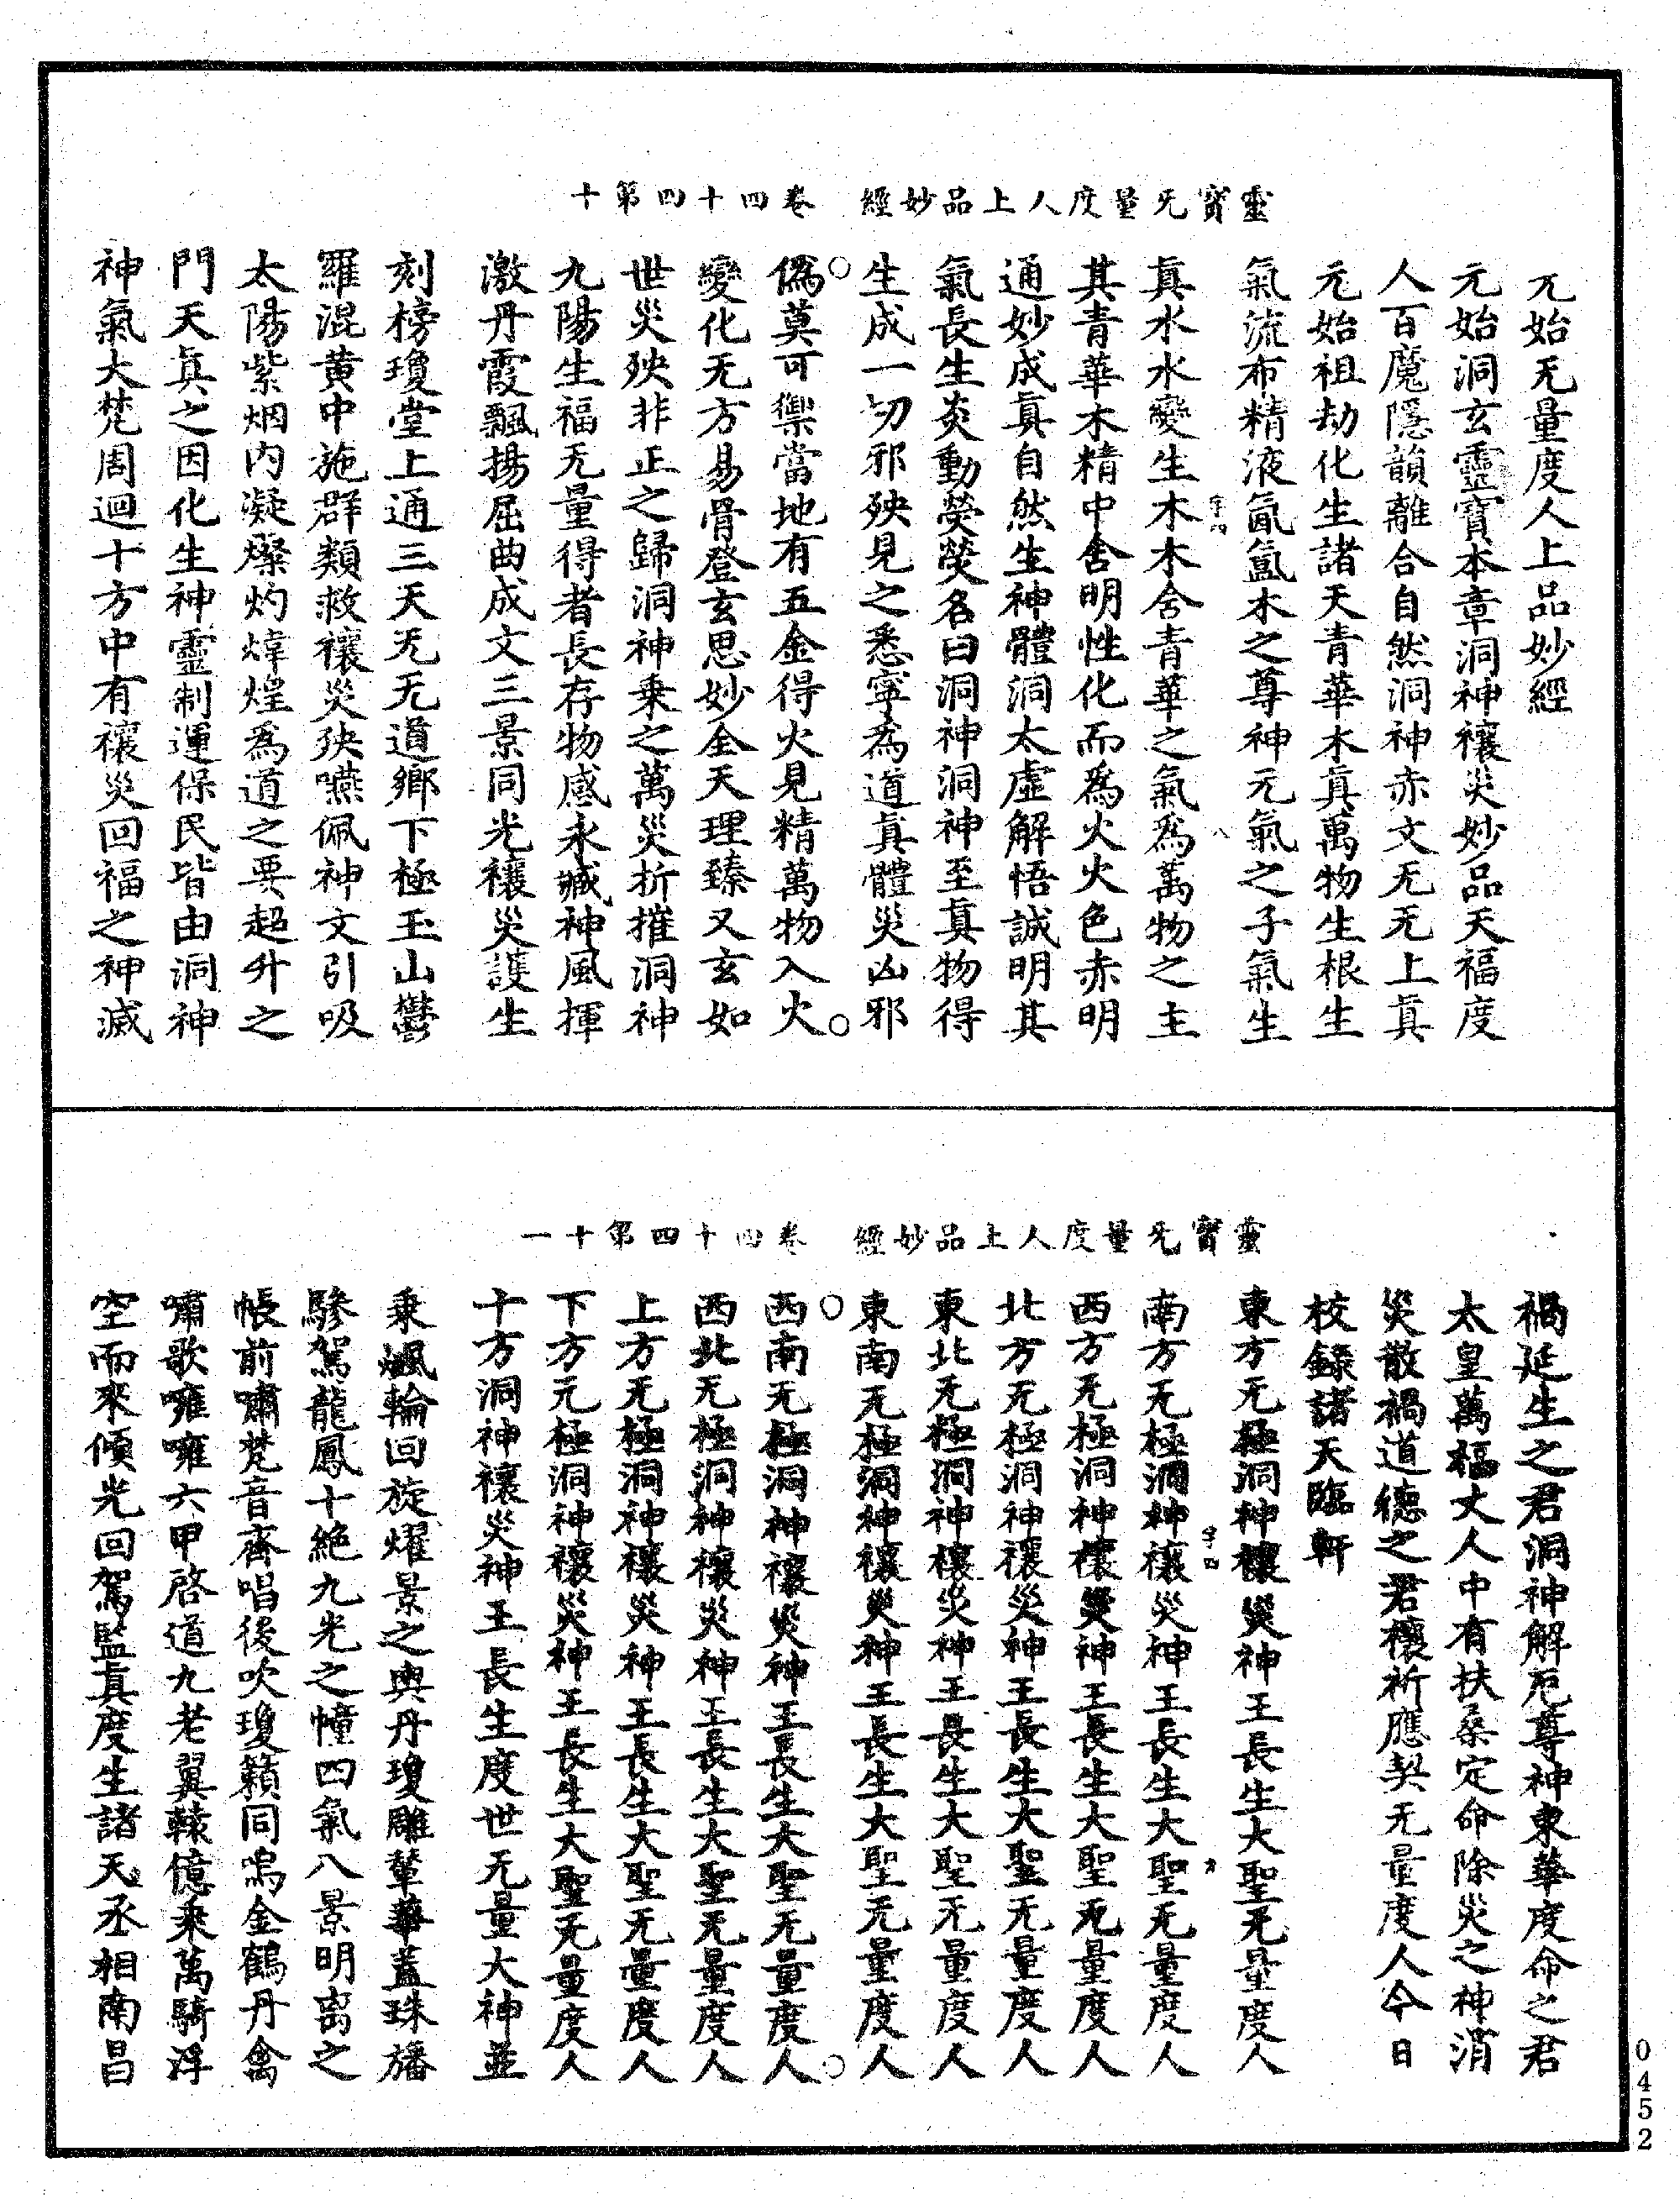 靈寶无量度人上品妙經　卷四十四第十
元始无量度人上品妙經
元始洞玄靈寶本章洞神禳災妙品天福度
人百魔隱韻離合自然洞神赤文无无上真
元始祖劫化生諸天青華木真萬物生根生
氣流布精液氤氳木之尊神元氣之子氣生
真水水變生木木含青華之氣為萬物之主
宇四
八
其青華木精中含明性化而為火火色赤明
通妙成真自然生神體洞太虛解悟誠明其
氣長生炎動熒熒名曰洞神洞神至真物得
生成一切邪殃見之悉寧為道真體災凶邪
偽莫可禦當地有五金得火見精萬物入火
變化无方易骨登玄思妙全天理臻又玄如
世災殃非正之歸洞神乘之萬災折摧洞神
九陽生福无量得者長存物感永臧神風揮
激丹霞飄揚屈曲成文三景同光禳災護生
刻榜瓊堂上通三天无无道鄉下極玉山鬱
羅混黃中施群類救禳災殃嚥佩神文引吸
太陽紫烟內凝燦灼煒煌為道之要超升之
門天真之因化生神靈制運保民皆由洞神
神氣大梵周迴十方中有禳災回福之神滅
靈寶无量度人上品妙經　卷四十四第十一
禍延生之君洞神解厄尊神東華度命之君
太皇萬福丈人中有扶桑定命除災之神消
災散禍道德之君禳祈應契无量度人今日
校錄諸天臨軒
東方无極洞神禳災神王長生大聖无量度人
宇四
南方无極洞神禳災神王長生大聖无量度人
西方无極洞神禳災神王長生大聖无量度人
北方无極洞神禳災神王長生大聖无量度人
東北无極洞神禳災神王長生大聖无量度人
東南无極洞神禳災神王長生大聖无量度人
西南无極洞神禳災神王長生大聖无量度人
西北无極洞神禳災神王長生大聖无量度人
上方无極洞神禳災神王長生大聖无量度人
下方无極洞神禳災神王長生大聖无量度人
十方洞神禳災神王長生度世无量大神並
乘飈輪回旋燿景之輿丹瓊雕輦華蓋珠旛
驂駕龍鳳十絕九光之幢四氣八景明离之
帳前嘯梵音齊唱後吹瓊籟同鳴金鶴丹禽
嘯歌嚶嚶六甲啓道九老翼轅億乘萬騎浮
空而來傾光回駕監真度生諸天丞相南昌
0452